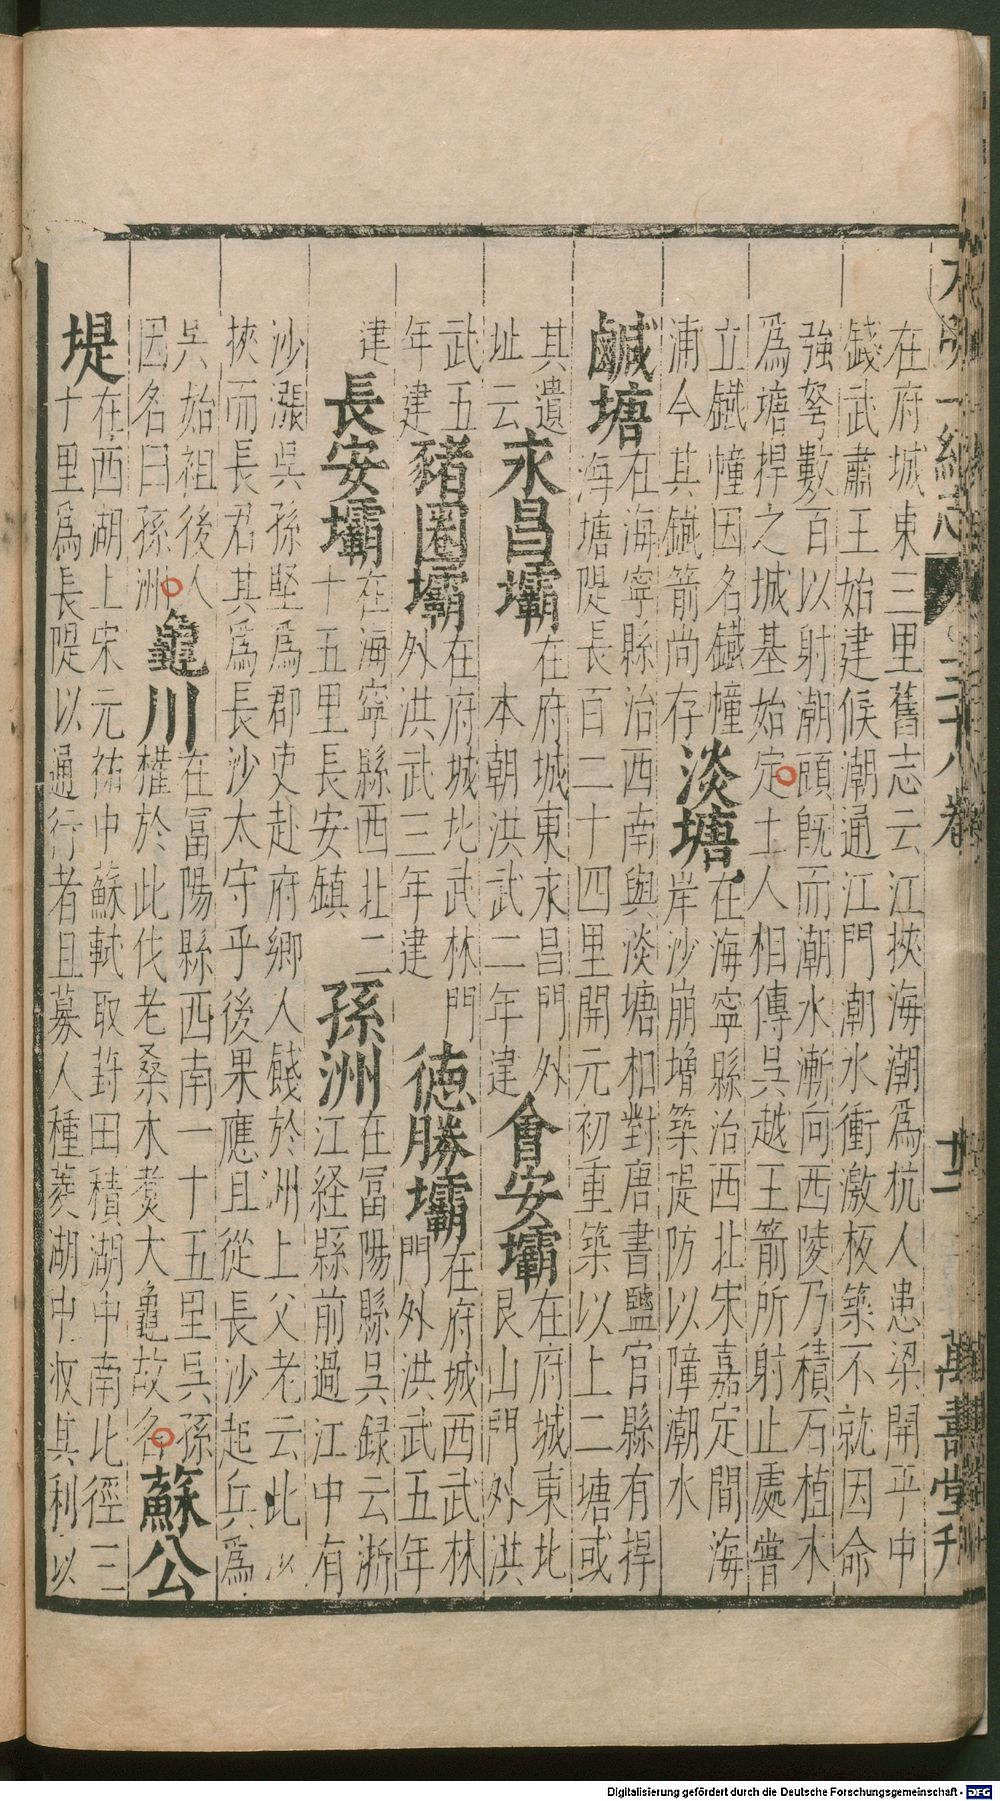 大明一統志 三十八卷 廿二 萬壽堂刊
在府城東三里舊志云江挾海潮爲杭人患梁開平中
錢武肅王始建候潮通江門潮水衝激板築不就因命
強弩數百以射潮頭旣而潮水漸向西陵乃積石植木
爲塘捍之城基始定土人相傳吳越王箭所射止處嘗
立鐵幢因名鐵幢
浦今其鐵箭尚存
淡塘
在海寧縣治西北宋嘉定間海
岸沙崩增築堤防以障潮水
鹹塘
在海寧縣治西南與淡塘相對唐書鹽官縣有捍
海塘隄長百二十四里開元初重築以上二塘或
其遺
址云
永昌壩
在府城東永昌門外
本朝洪武二年建
會安壩
在府城東北
艮山門外洪
武五
年建
豬圈壩
在府城北武林門
外洪武三年建
德勝壩
在府城西武林
門外洪武五年
建
長安壩
在海寧縣西北二
十五里長安鎮
孫洲
在富陽縣吳録云浙
江経縣前過江中有
沙漲吳孫堅爲郡吏赴府鄉人餞於洲上父老云此
狹而長君其爲長沙太守乎後果應且從長沙起兵爲
吳始祖後人
因名曰孫洲
龜川
在富陽縣西南一十五里吳孫
權於此伐老桑木煑大龜故名
蘇公
堤
在西湖上宋元祐中蘇軾取葑田積湖中南北徑三
十里爲長隄以通行者且募人種菱湖中收其利以
Digitalisierung gefördert durch die Deutsche Forschungsgemeinschaft - DFG